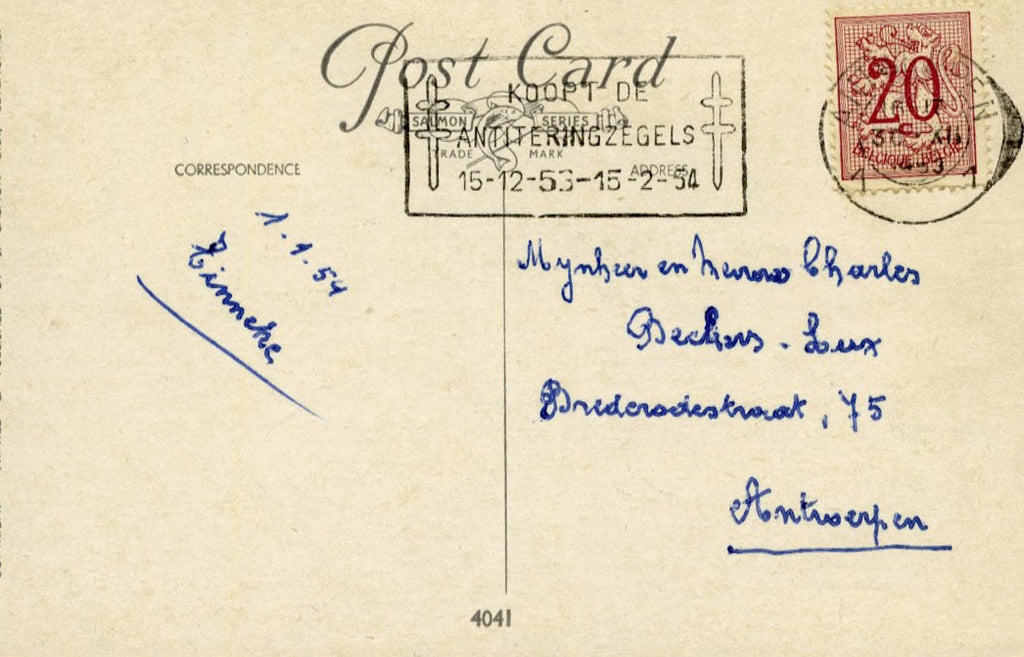 Post Card
KOOPT DE
SALMON SERIES
ANTITERINGZEGELS
TRADE MARK
CORRESPONDENCE
ADDRESS
15-12-53-15-2-54
20
BELGIQUE-BELGIE
1 1
1.1.54
Tinneke
Mynheer en Mevrouw Charles
Beckers - Lux
Brederodestraat, 75
Antwerpen
4041